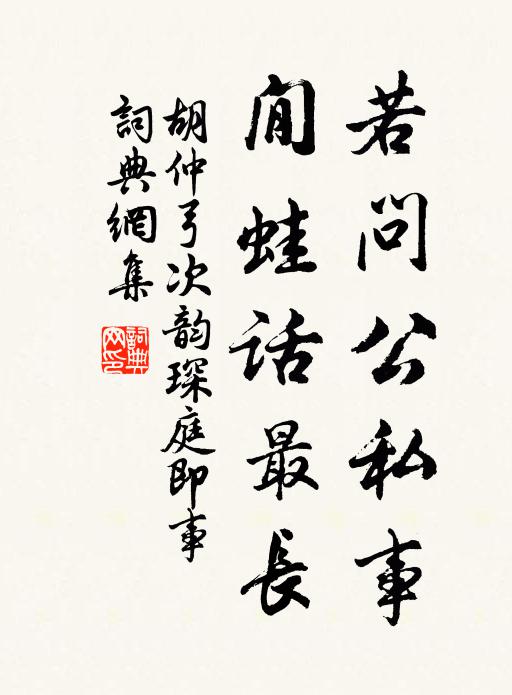 若問公私事
閒蛙話最長
胡仲弓次韵琛庭即事
詞典網集
詞典
网印